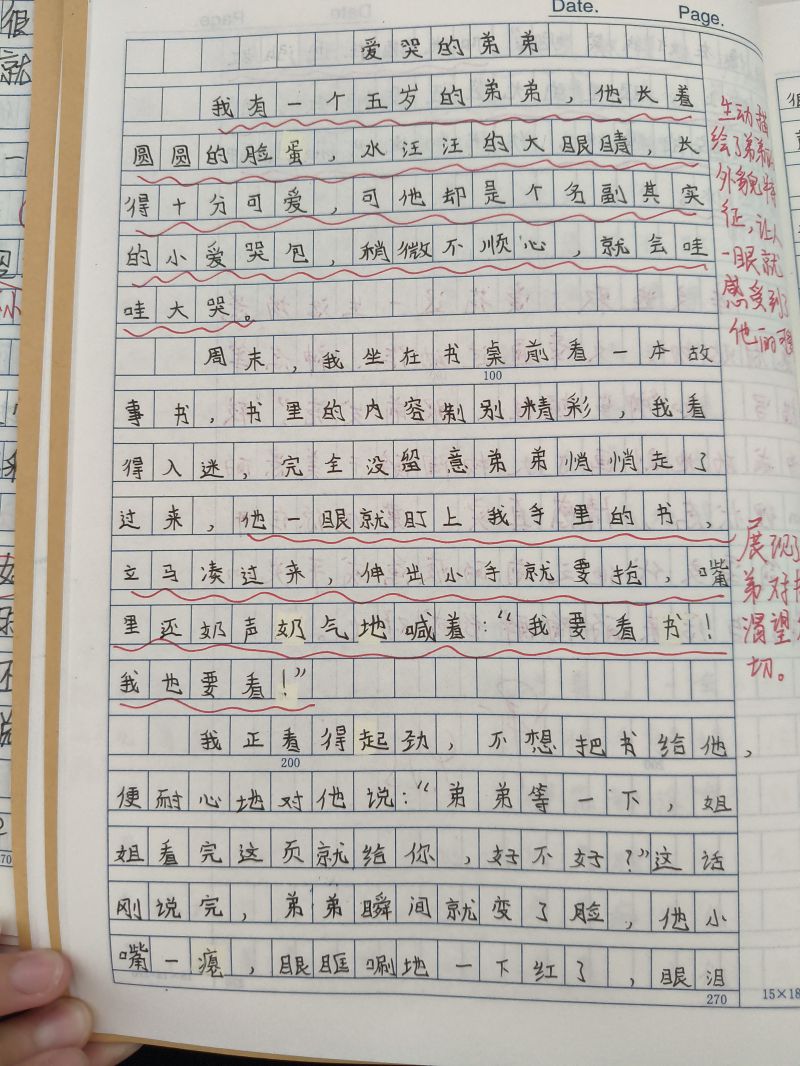 Date.
Page.
爱哭的弟弟
我有一个五岁的弟弟，他长着
圆圆的脸蛋，水汪汪的大眼睛，长
得十分可爱，可他却是个名副其实
的小爱哭包，稍微不顺心，就会哇
哇大哭。
周末，我坐在书桌前看一本故
100
事书，书里的内容制别精彩，我看
得入迷，完全没留意弟弟悄悄走了
过来，他一眼就盯上我手里的书，
立马凑过来，伸出小手就要抢，嘴
里还奶声奶气地喊着：“我要看书！
我也要看！”
我正看得起劲，不想把书给他，
200
便耐心地对他说：“弟弟等一下，姐
姐看完这页就给你，好不好？”这话
刚说完，弟弟瞬间就变了脸，他小
嘴一瘪，眼眶唰地一下红了，眼泪
270
15×18
生动描
绘了弟弟的
外貌特
征，让人
一眼就
感受到了
他的可
展现了
弟对
渴望
切。